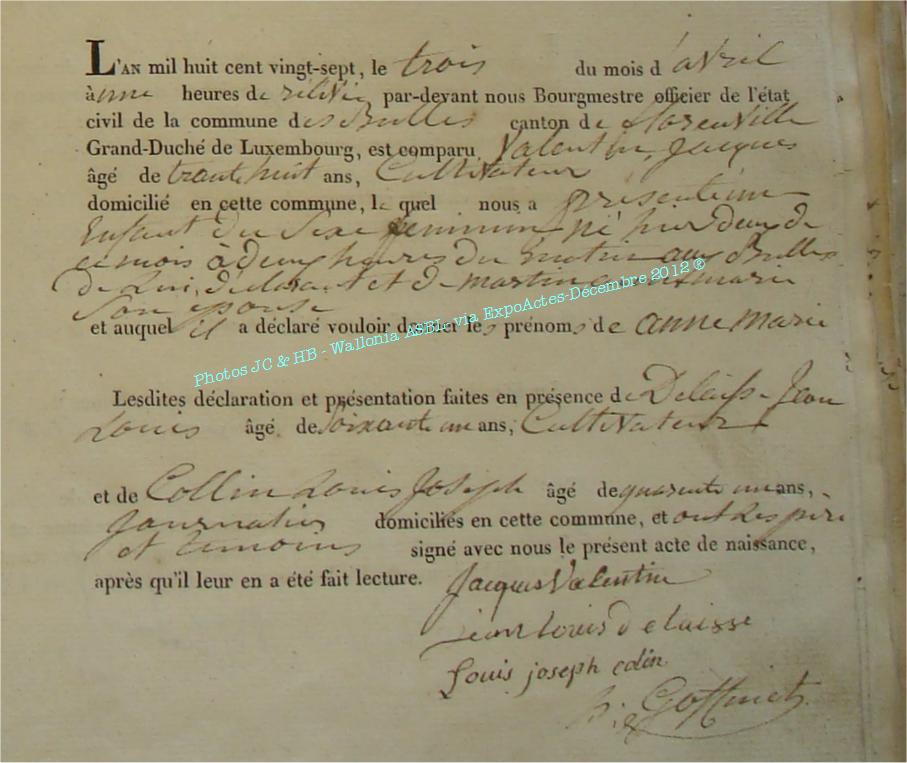 L'AN mil huit cent vingt-sept, le trois du mois d'avril
à une heures de relevée par-devant nous Bourgmestre officier de l'état
civil de la commune des Bulles canton de florenville
Grand-Duché de Luxembourg, est comparu Valentin, Jacques
âgé de trente huit ans, Cultivateur
domicilié en cette commune, le quel nous a présenté un
Enfant du Sexe feminin né hier deux de
ce mois à deux heures du matin aux Bulles
de Lui, déclarant et de martin marie
Son epouse
et auquel il a déclaré vouloir donner les prénoms de anne marie
Photos JC & HB - Wallonia ASBL, via ExpoActes-Décembre 2012 ®
Lesdites déclaration et présentation faites en présence de Delaisse Jean
Louis âgé de Soixante un ans, Cultivateur
et de Collin Louis Joseph âgé de quarente un ans,
Journalier domiciliés en cette commune, et ont Les pere
et temoins signé avec nous le présent acte de naissance,
après qu'il leur en a été fait lecture.
Jacques Valentin
jean louis delaisse
Louis joseph colin
Goffinet